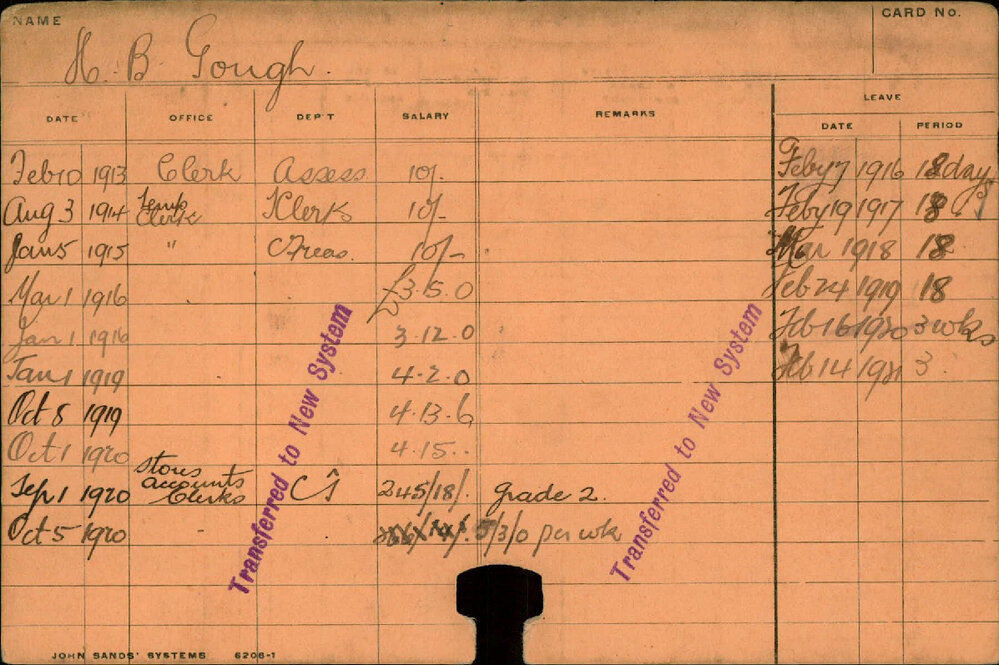 NAME
CARD No.
H. B Gough.
DATE OFFICE DEP'T SALARY REMARKS LEAVE
DATE PERIOD
Feb 10 1913 Clerk Assess 10/- Feby 7 1916 18 days
Aug 3 1914 Temp Clerk Clerk 10/- Feby 19 1917 18 "
Jan 5 1915 " C Treas. 10/- Mar 1918 18
Mar 1 1916 £3.5.0 Feb 24 1919 18
Jan 1 1916 3.12.0 Feb 16 1920 3 wks
Jan 1 1919 4.2.0 Feb 14 1921 3
Oct 8 1919 4.13.6
Oct 1 1920 4.15..
Sep 1 1920 Stores accounts Clerks 245/18/. grade 2.
Oct 5 1920 5/3/0 per wk
Transferred to New System
Transferred to New System
JOHN SANDS' SYSTEMS 6206-1